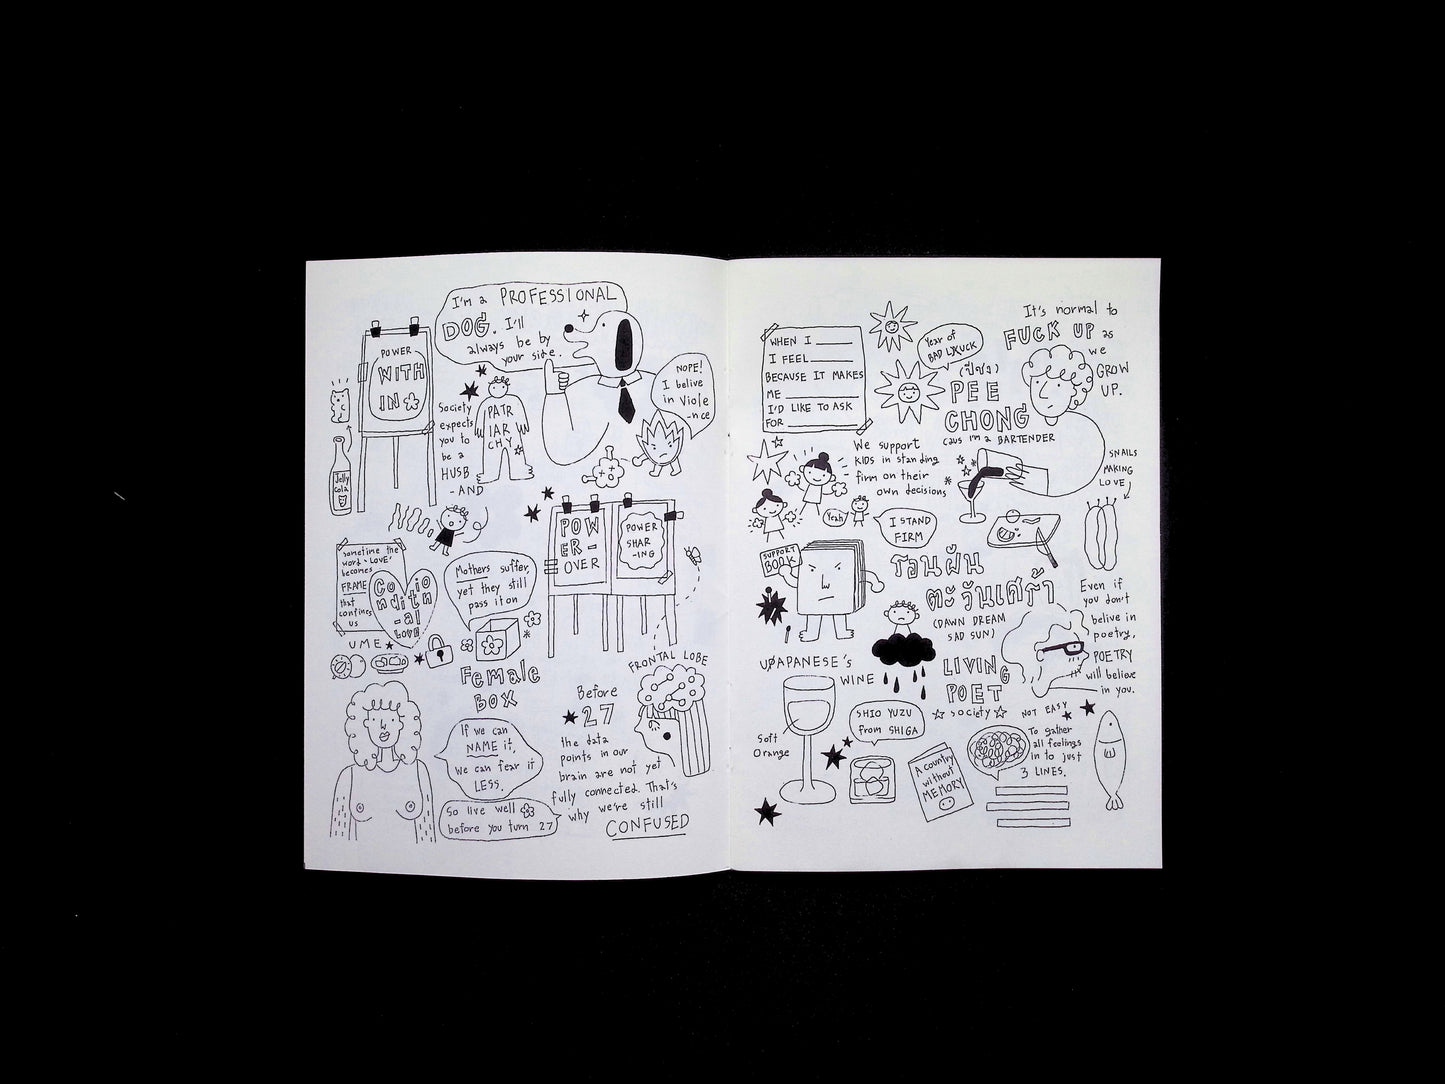 I'm a PROFESSIONAL
DOG. I'll
always be by
your side.
POWER
WITH
IN
NOPE!
I belive
in Viole
-nce
Society
expects
you to
be a
HUSB
-AND
PATR
IAR
CHY
Jelly
cola
POW
ER-
OVER
POWER
SHAR
-ING
sometime the
word "LOVE"
becomes
FRAME
that
confines
us
Co
nditio
n
-al
LOVE
Mothers suffer,
yet they still
pass it on
UME
Female
BOX
FRONTAL LOBE
Before
27
the data
points in our
brain are not yet
fully connected. That's
why we're still
CONFUSED
If we can
NAME it,
we can fear it
LESS.
So live well
before you turn 27
WHEN I
I FEEL
BECAUSE IT MAKES
ME
I'D LIKE TO ASK
FOR
Year of
BAD LUCK
(ปีชง)
PEE
CHONG
CAUS I'M A BARTENDER
It's normal to
FUCK UP as
we
GROW
UP.
SNAILS
MAKING
LOVE
We support
KIDS in standing
firm on their
own decisions
Yeah
I STAND
FIRM
SUPPORT
BOOK
รอนฝัน
ตะวันเศร้า
(DAWN DREAM
SAD SUN)
Even if
you don't
belive in
poetry,
POETRY
will believe
in you.
LIVING
POET
society
JAPANESE's
WINE
Soft
Orange
SHIO YUZU
from SHIGA
A country
without
MEMORY
NOT EASY
To gather
all feelings
in to just
3 LINES.